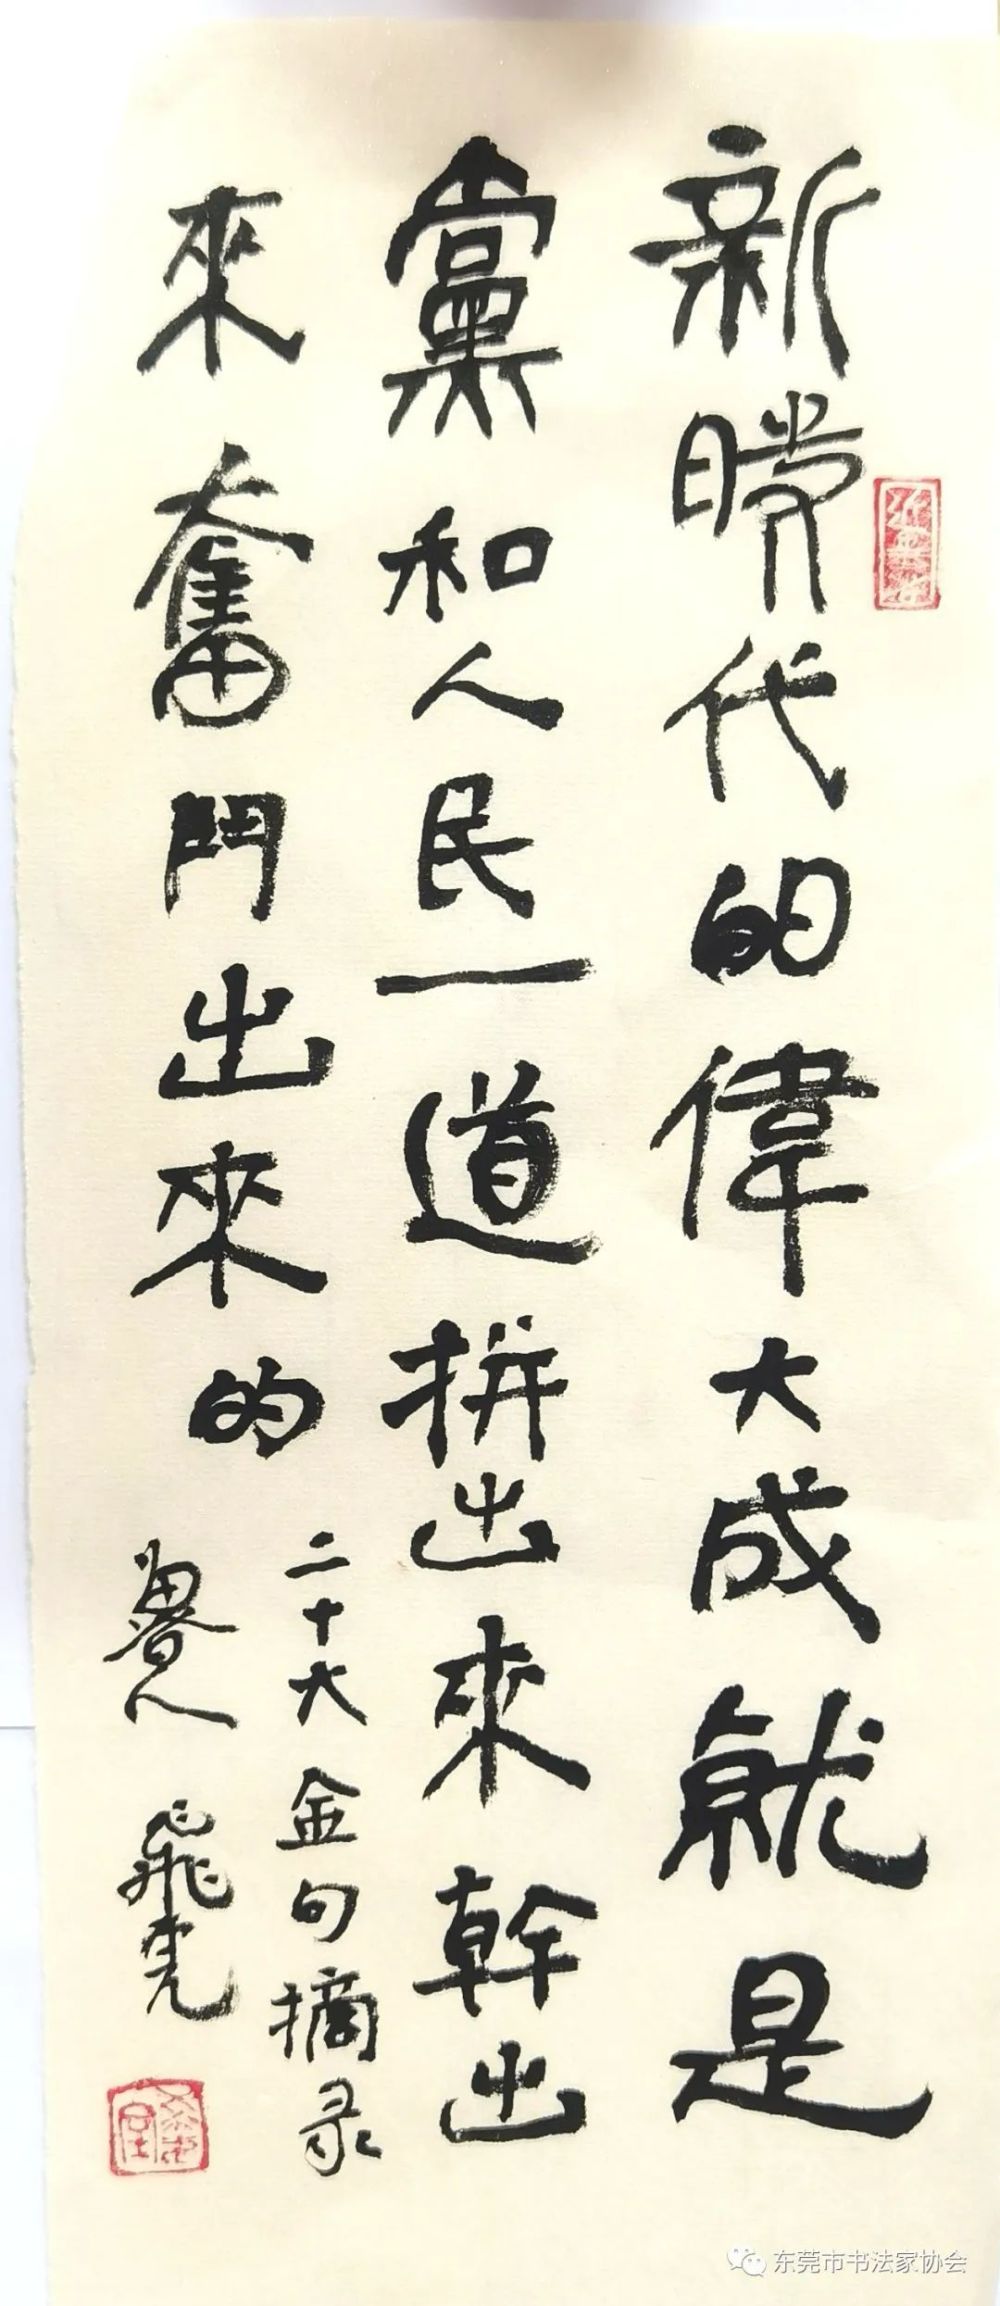 新時代的偉大成就是
黨和人民一道拼出來幹出
來奮鬥出來的
二十大金句摘录
飛虎
东莞市书法家协会